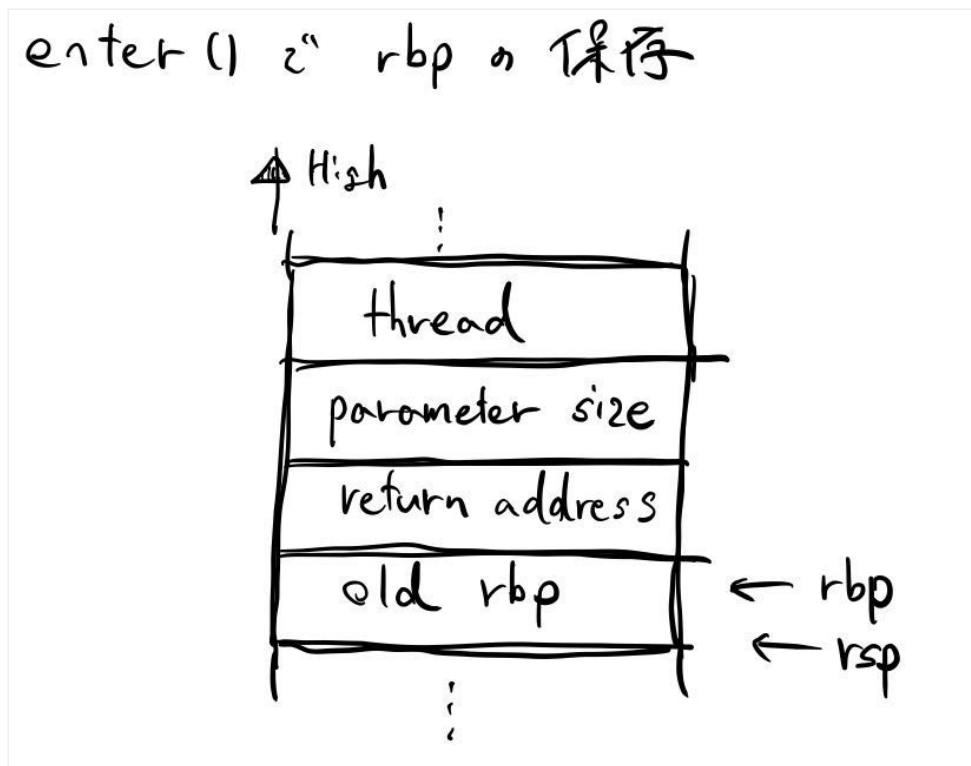 enter() で rbp の 保存
High
thread
parameter size
return address
old rbp
← rbp
← rsp